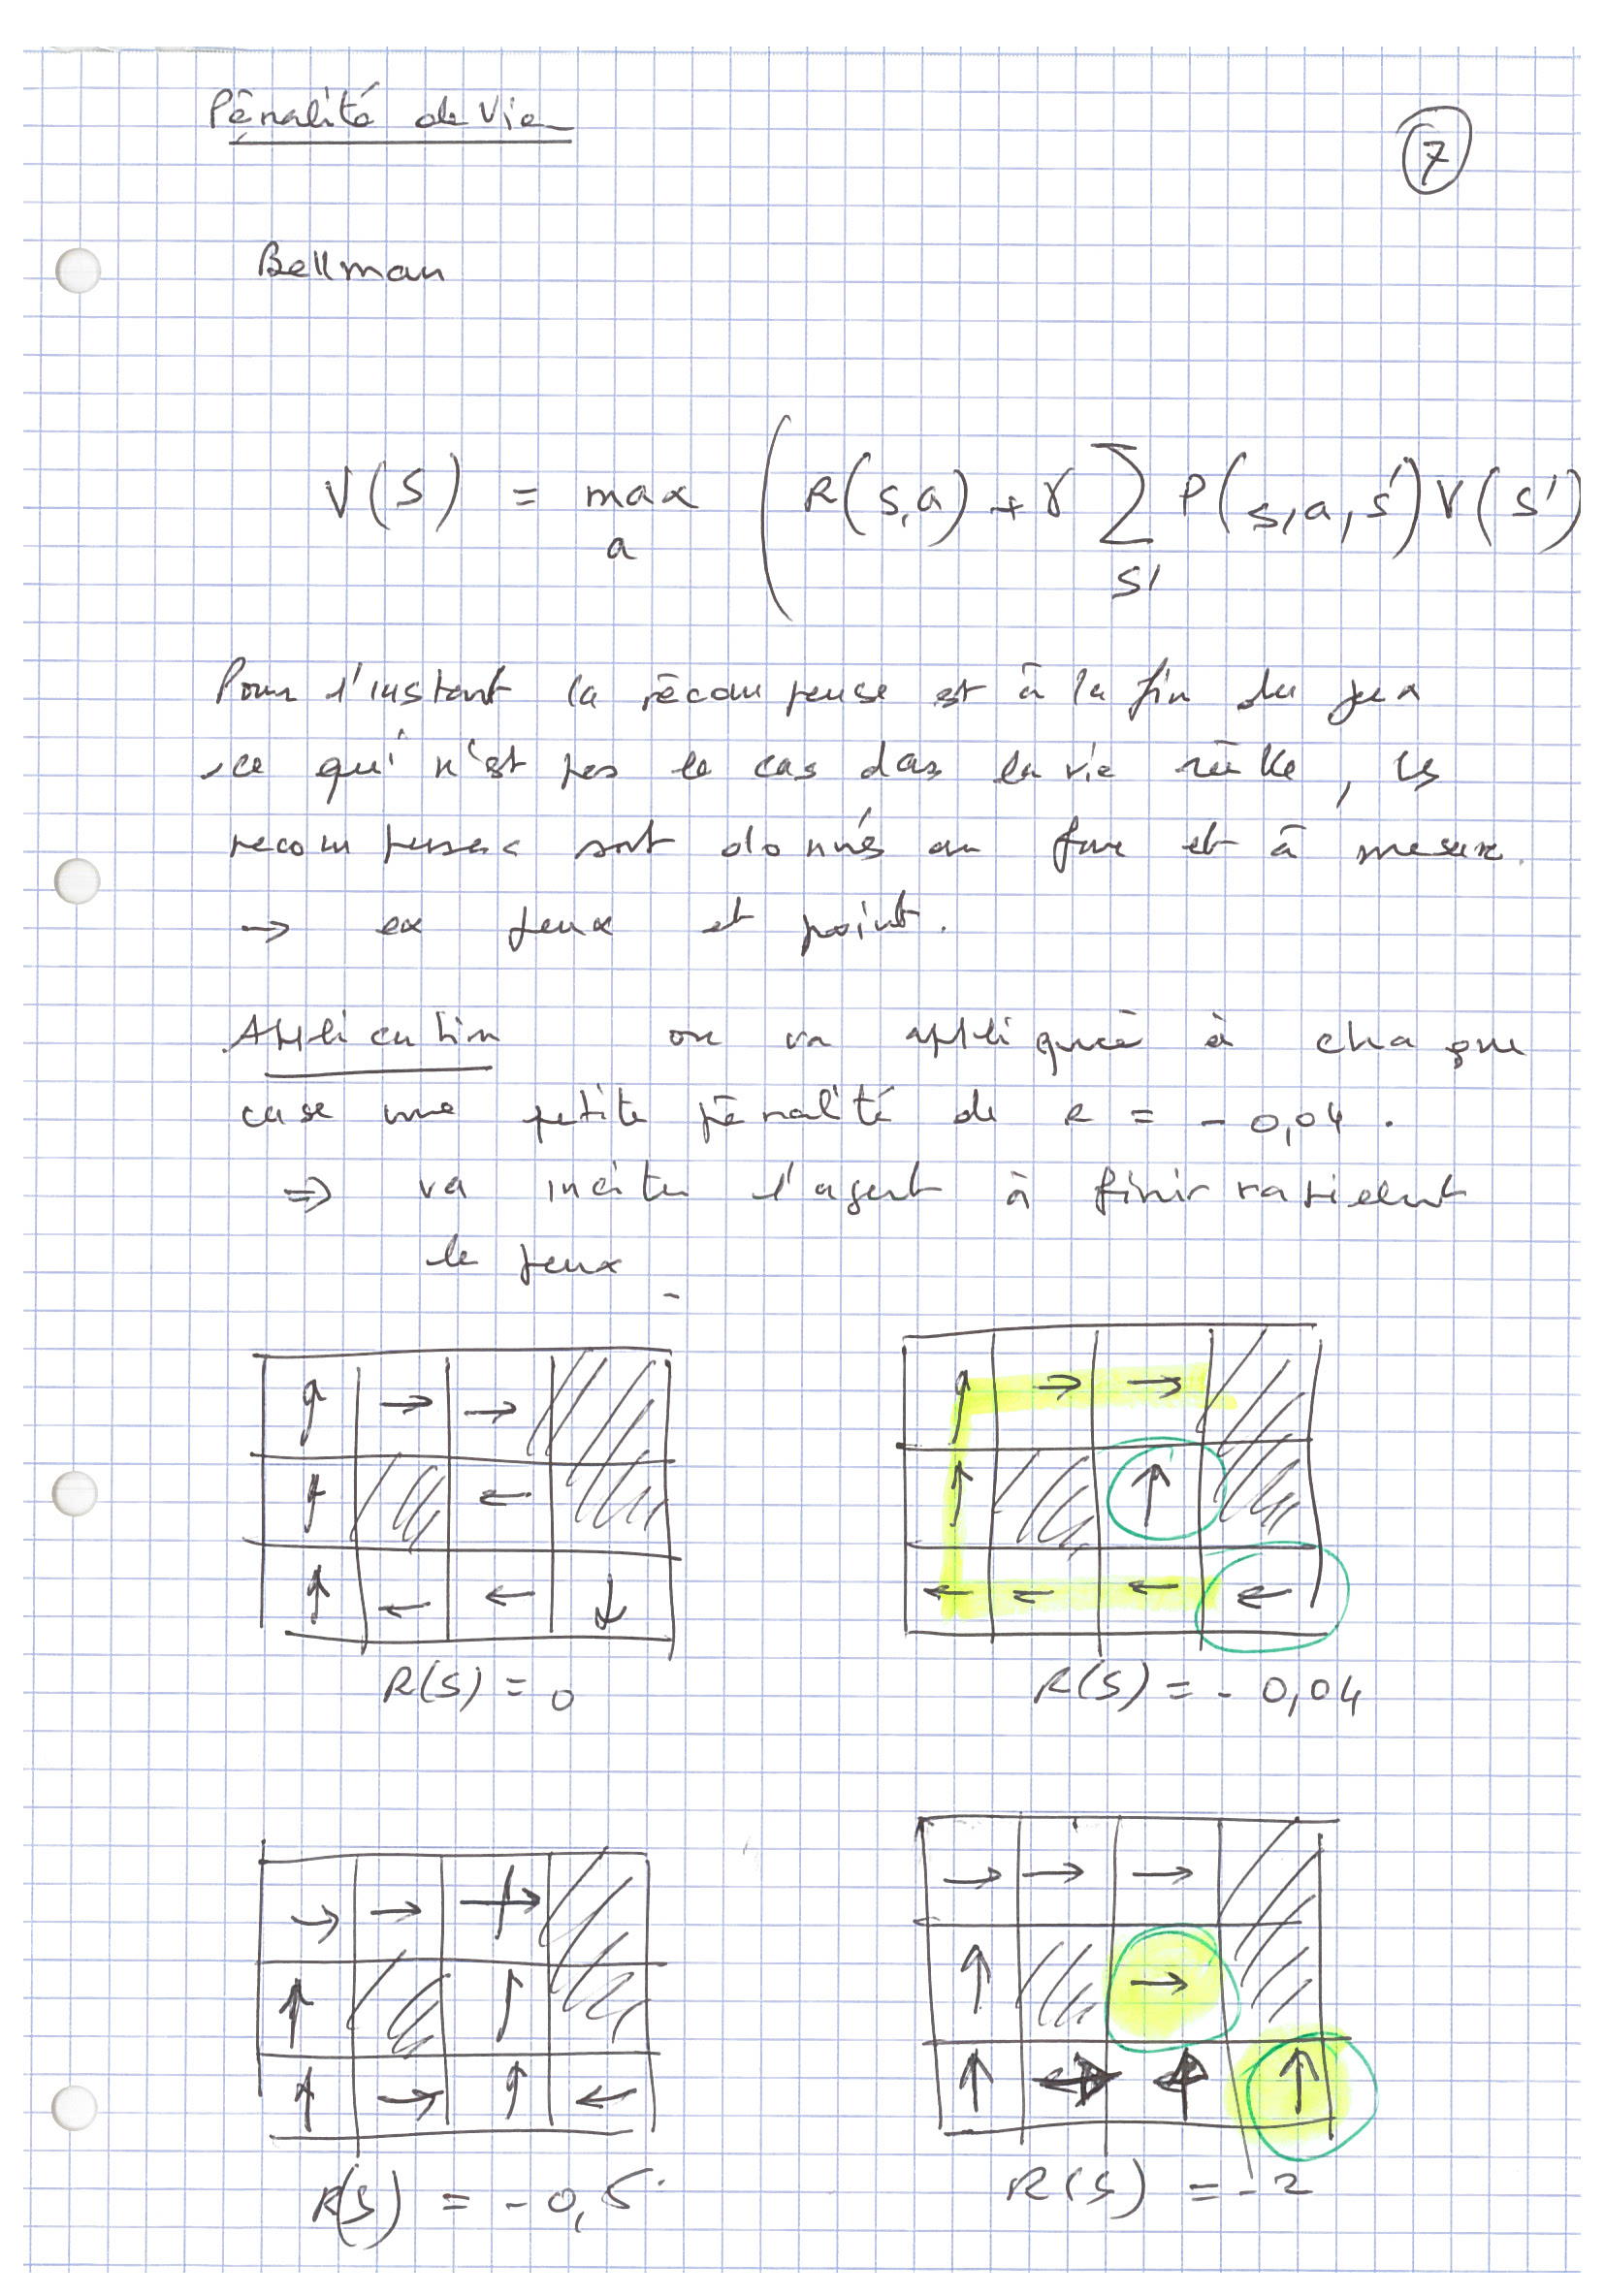 Pénalité de Vie
7
Bellman
V(S) = max a ( R(s,a) + γ ∑ s' P(s,a,s') V(s')
Pour l'instant la récompense est à la fin du jeux
, ce qui n'est pas le cas dans la vie réelle, les
recompenses sont donnés au fur et à mesure.
→ ex jeux et point.
Application on va appliquer à chaque
case une petite pénalité de R = -0,04.
⇒ va inciter l'agent à finir rapidement
le jeux
↑ → → 
↑ ←
↑ ← ← ↓
↑ → →
↑ ↑
← ← ← ←
R(S) = 0
R(S) = - 0,04
→ → →
↑ ↑
↑ → ↑ ←
→ → →
↑ →
↑ → ↑ ↑
R(S) = - 0,5
R(S) = - 2